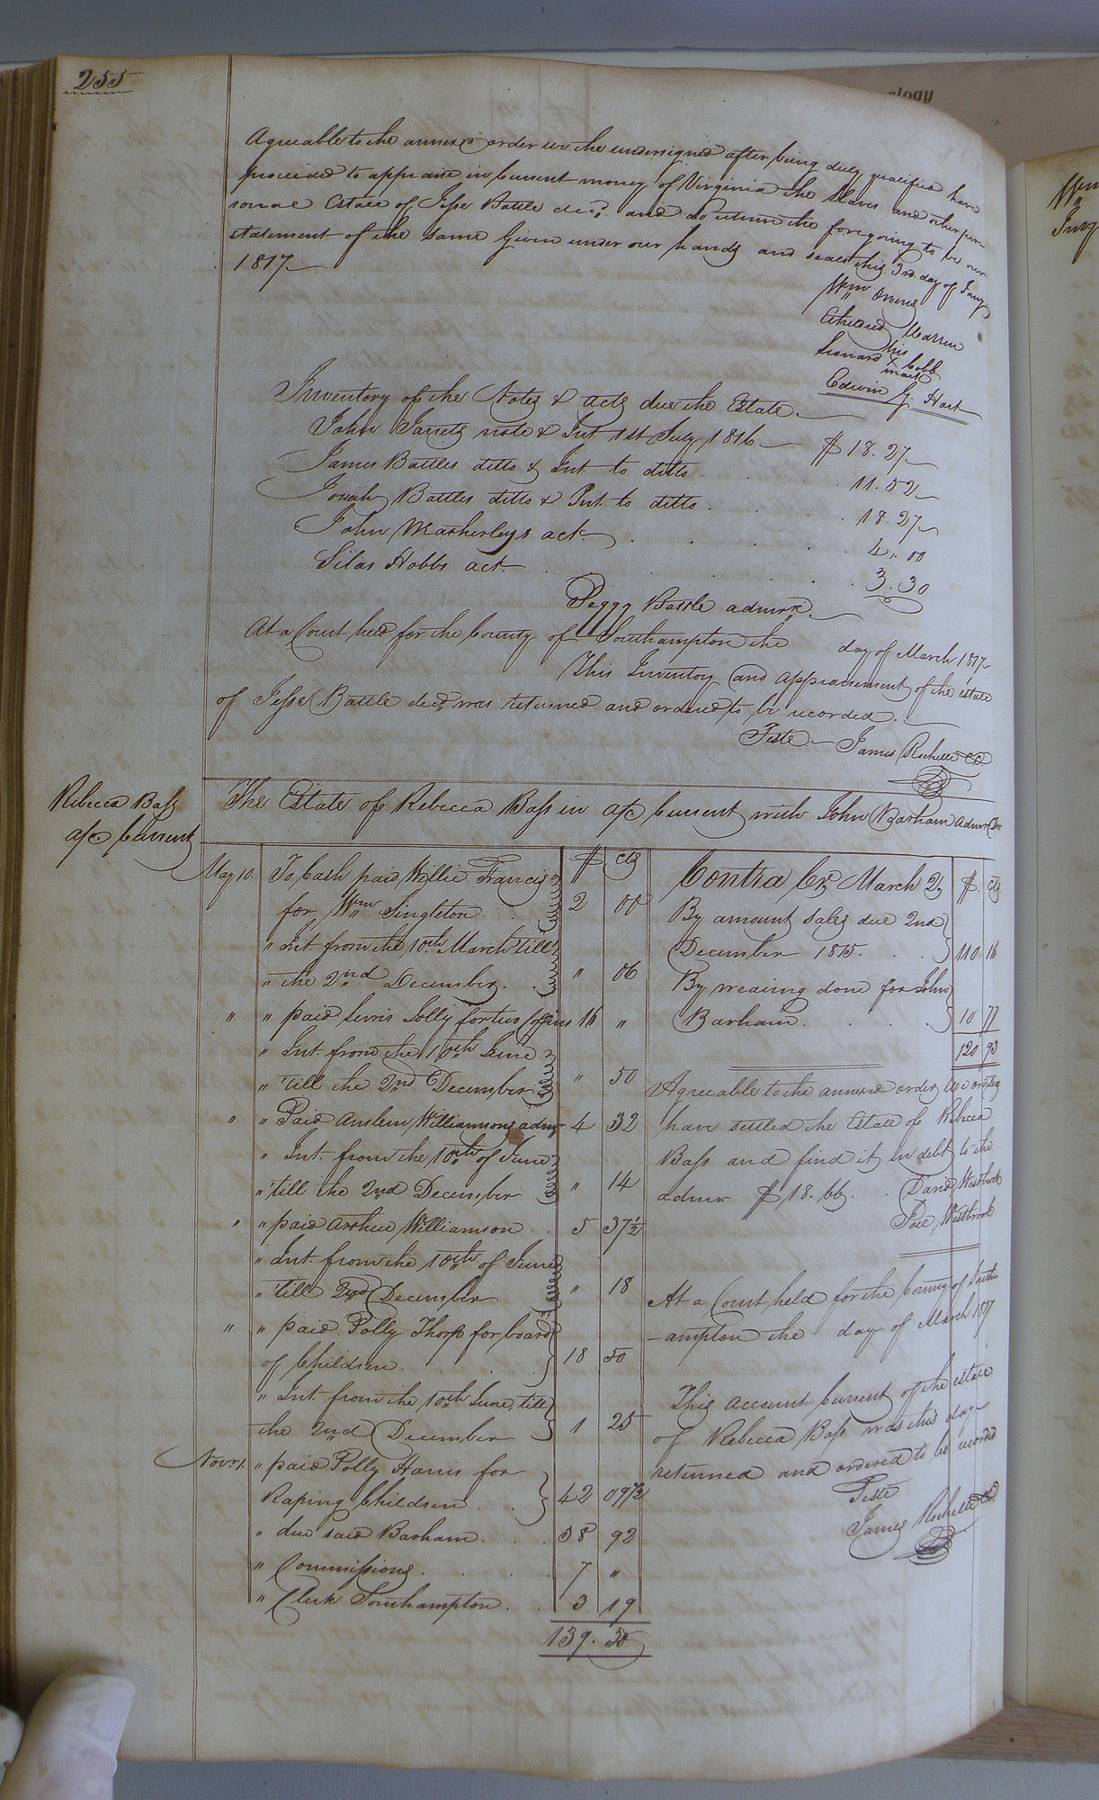 255
Agreeable to the annexed order we the undersigned after being duly qualified have
proceeded to appraise in Current money of Virginia the slaves and other per-
sonal Estate of Jesse Battle decd. and do return the foregoing to be our
statement of the same Given under our hands and seals this 3rd. day of Jany
1817
Wm
Warren
his
Leonard Cobb
mark
Edwin G. Hart
Inventory of the Notes & acts due the Estate.
John Jarrets note & Int 1st July 1816 $18.27
James Battles ditto & Int to ditto 11.52
Josiah Battles ditto & Int. to ditto 18.27
John Weatherleys act 4.00
Silas Hobbs act. 3.30
Peggy Battle admrx.
At a Court held for the County of Southampton the day of March 1817
This Inventory and appraisement of the estate
of Jesse Battle decd. was returned and ordered to be recorded.
Teste. James Rochelle CC
Rebecca Bass
a/c Current
The Estate of Rebecca Bass in a/c Current with John Barham admr Dr
$ cts
May 10. To Cash paid Willie Francis
for Wm Singleton 2 00
" Int from the 10th March till
" the 2nd December " 06
" " paid Lewis Jolly for two Coffins 16 "
" Int. from the 10th June
" till the 2nd December " 50
" " Paid Anslem Williamsons admr 4 32
" Int. from the 10th of June
" till the 2nd December " 14
" " paid Arthur Williamson 5 37½
" Int. from the 10th of June
" till 2nd December " 18
" " paid Polly Thorp for board
of Children 18 50
" Int. from the 10th June till
the 2nd December 1 25
Novr. 1. " paid Polly Harris for
Raping Children 42 09½
" due said Barham 38 92
" Commissions 7 "
" Clerk Southampton 3 19
139.
Contra Cr March 2 $ cts
By amount Sales due 2nd
December 1815. 110 16
By weaving done for John
Barham 10 77
120 93
Agreeable to the annexed order we
have settled the Estate of Rebecca
Bass and find it in debt to the
admr $18.66. David Westbrook
Westbrook
At a Court held for the County of South
-ampton the day of March 1817
This Account Current of the estate
of Rebecca Bass was this day
returned and ordered to be recorded
Teste
James Rochelle CC